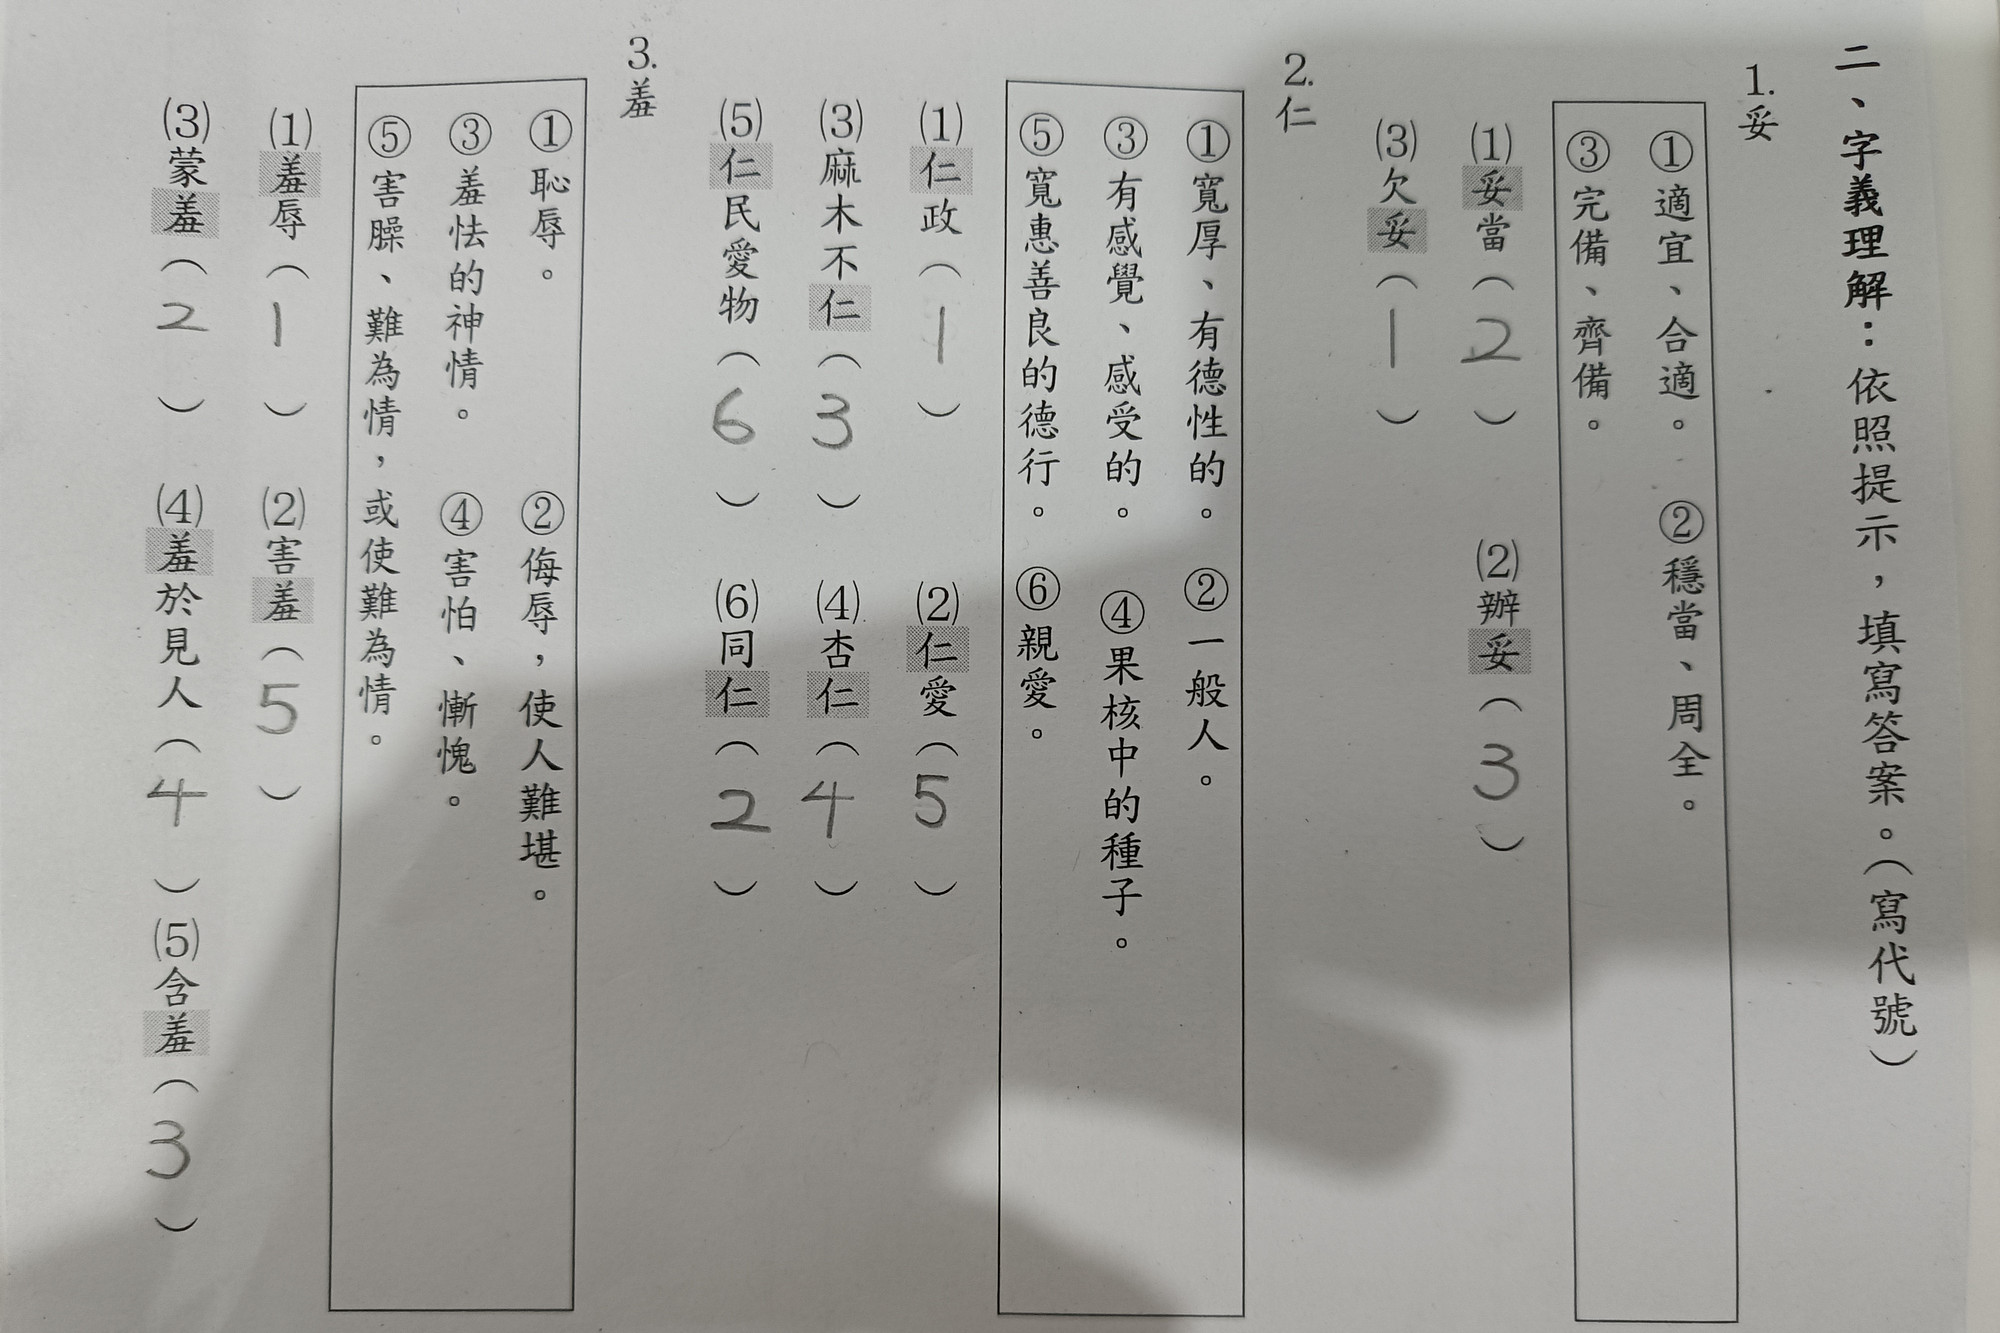 二、字義理解：依照提示，填寫答案。（寫代號）
1.妥
①適宜、合適。 ②穩當、周全。
③完備、齊備。
⑴妥當（2） ⑵辦妥（3）
⑶欠妥（1）
2.仁
①寬厚、有德性的。 ②一般人。
③有感覺、感受的。 ④果核中的種子。
⑤寬惠善良的德行。 ⑥親愛。
⑴仁政（1） ⑵仁愛（5）
⑶麻木不仁（3） ⑷杏仁（4）
⑸仁民愛物（6） ⑹同仁（2）
3.羞
①恥辱。 ②侮辱，使人難堪。
③羞怯的神情。 ④害怕、慚愧。
⑤害臊、難為情，或使難為情。
⑴羞辱（1） ⑵害羞（5）
⑶蒙羞（2） ⑷羞於見人（4） ⑸含羞（3）